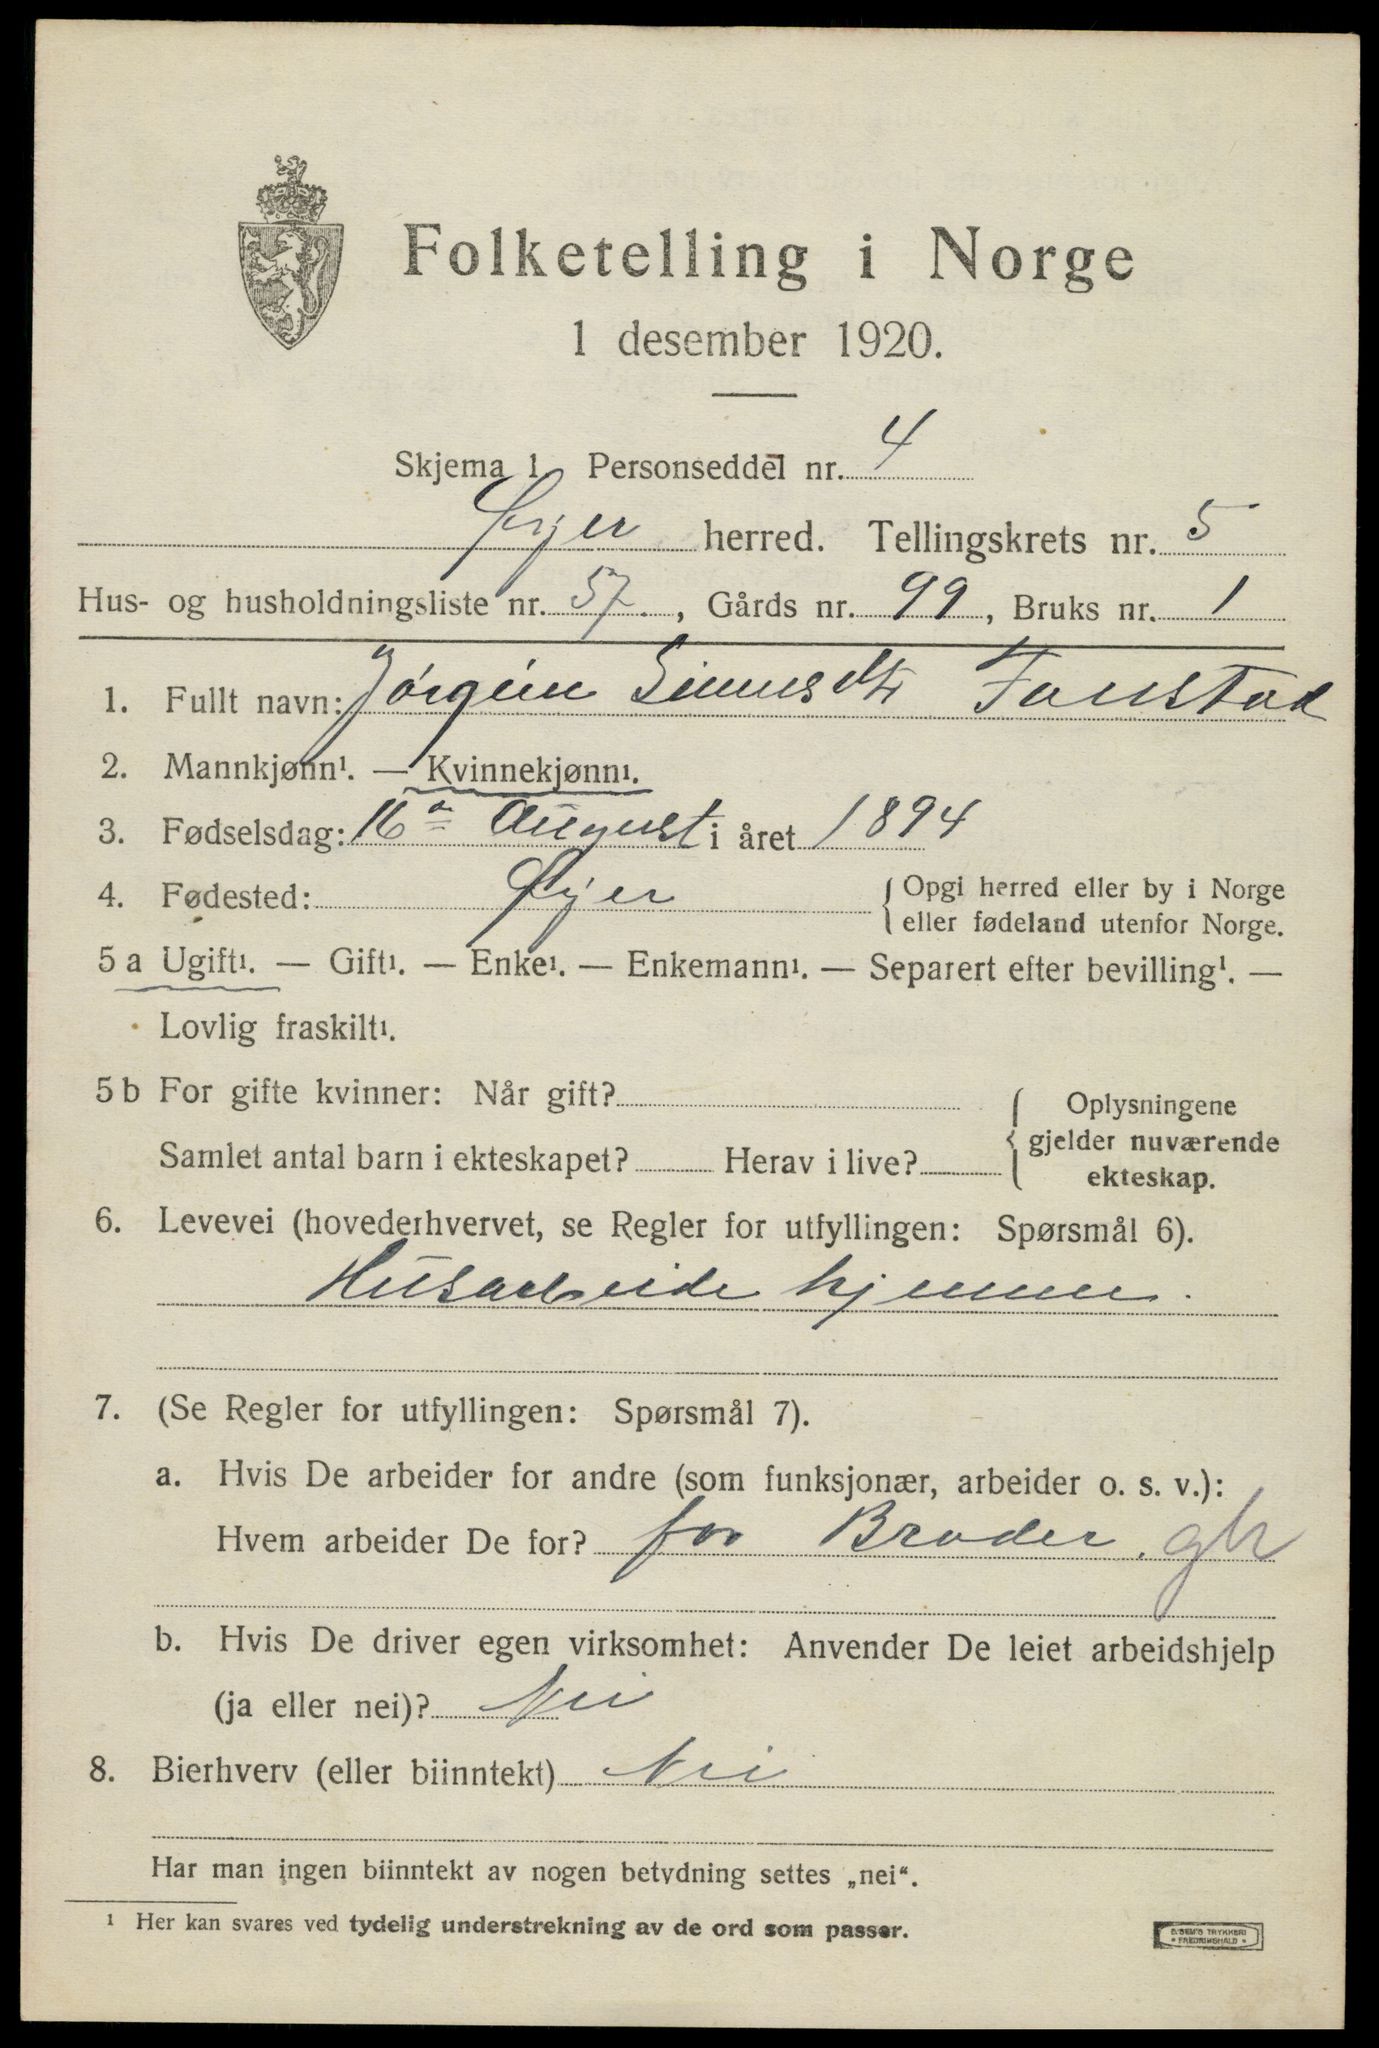 Folketelling i Norge
1 desember 1920.
Skjema 1 Personseddel nr. 4
Øyer herred. Tellingskrets nr. 5
Hus- og husholdningsliste nr. 57, Gårds nr. 99, Bruks nr. 1
1. Fullt navn: Jørgine Simensdtr Fonstad
2. Mannkjønn¹. — Kvinnekjønn¹.
3. Fødselsdag: 16de August i året 1894
4. Fødested: Øyer { Opgi herred eller by i Norge
eller fødeland utenfor Norge.
5 a Ugift¹. — Gift¹. — Enke¹. — Enkemann¹. — Separert efter bevilling¹. —
Lovlig fraskilt¹.
5 b For gifte kvinner: Når gift? { Oplysningene
gjelder nuværende
ekteskap.
Samlet antal barn i ekteskapet? Herav i live?
6. Levevei (hovederhvervet, se Regler for utfyllingen: Spørsmål 6).
Husarbeide hjemme.
7. (Se Regler for utfyllingen: Spørsmål 7).
a. Hvis De arbeider for andre (som funksjonær, arbeider o. s. v.):
Hvem arbeider De for? for Broder. gbr
b. Hvis De driver egen virksomhet: Anvender De leiet arbeidshjelp
(ja eller nei)? Nei
8. Bierhverv (eller biinntekt) Nei
Har man ingen biinntekt av nogen betydning settes „nei“.
¹ Her kan svares ved tydelig understrekning av de ord som passer.
E. SEM'S TRYKKERI
• FREDRIKSHALD •